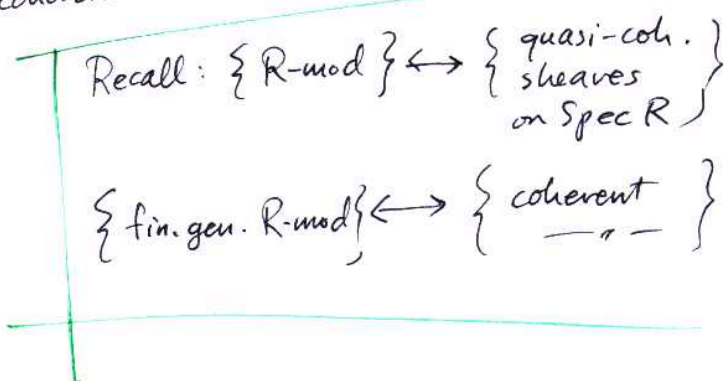 coherent
Recall: { R-mod } ↔ { quasi-coh.
sheaves
on Spec R }
{ fin. gen. R-mod } ↔ { coherent
—〃— }